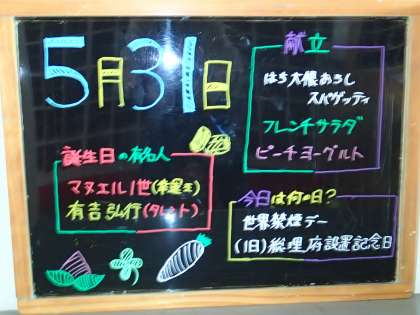 5月31日
献立
スパゲッティ
フレンチサラダ
ピーチヨーグルト
誕生日の有名人
マヌエル1世(幸運王)
有吉弘行(タレント)
今日は何の日?
世界禁煙デー
(旧)総理府設置記念日